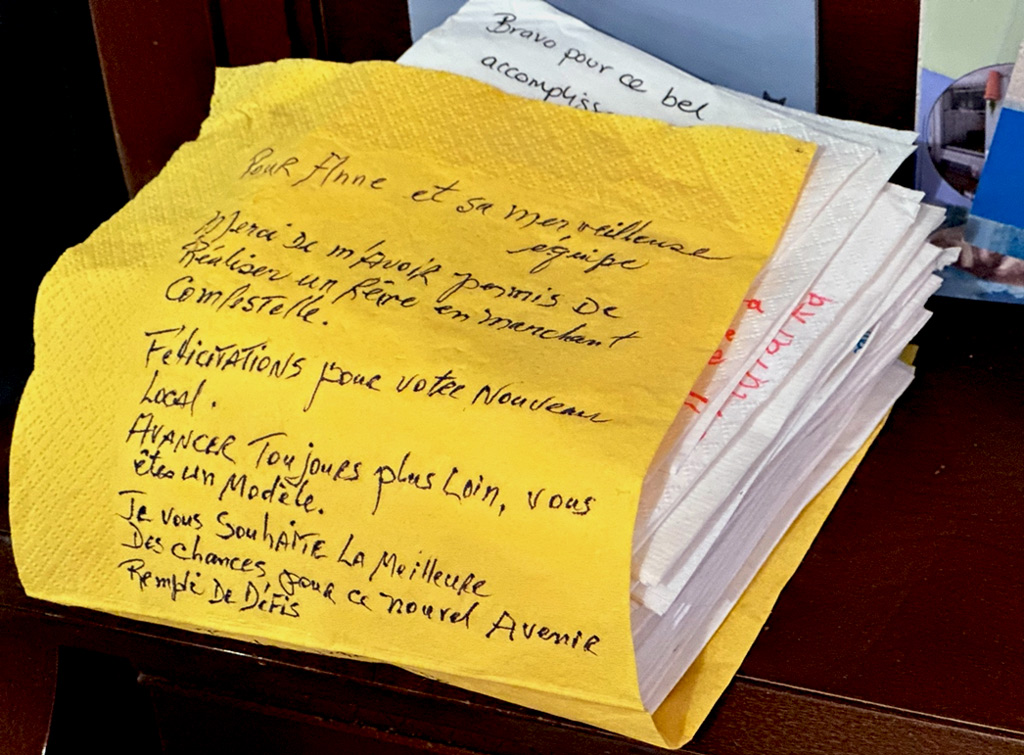 Bravo pour ce bel
accompliss
Pour Anne et sa merveilleuse
équipe
Merci De m'Avoir permis De
Réaliser un Rêve en marchant
Compostelle.
FéliciTATIONS pour votre Nouveau
Local.
AVANCER Toujours plus Loin, vous
êtes un Modèle.
Je vous SouhAITE LA Meilleure
Des chances pour ce nouvel Avenir
Rempli De Défis